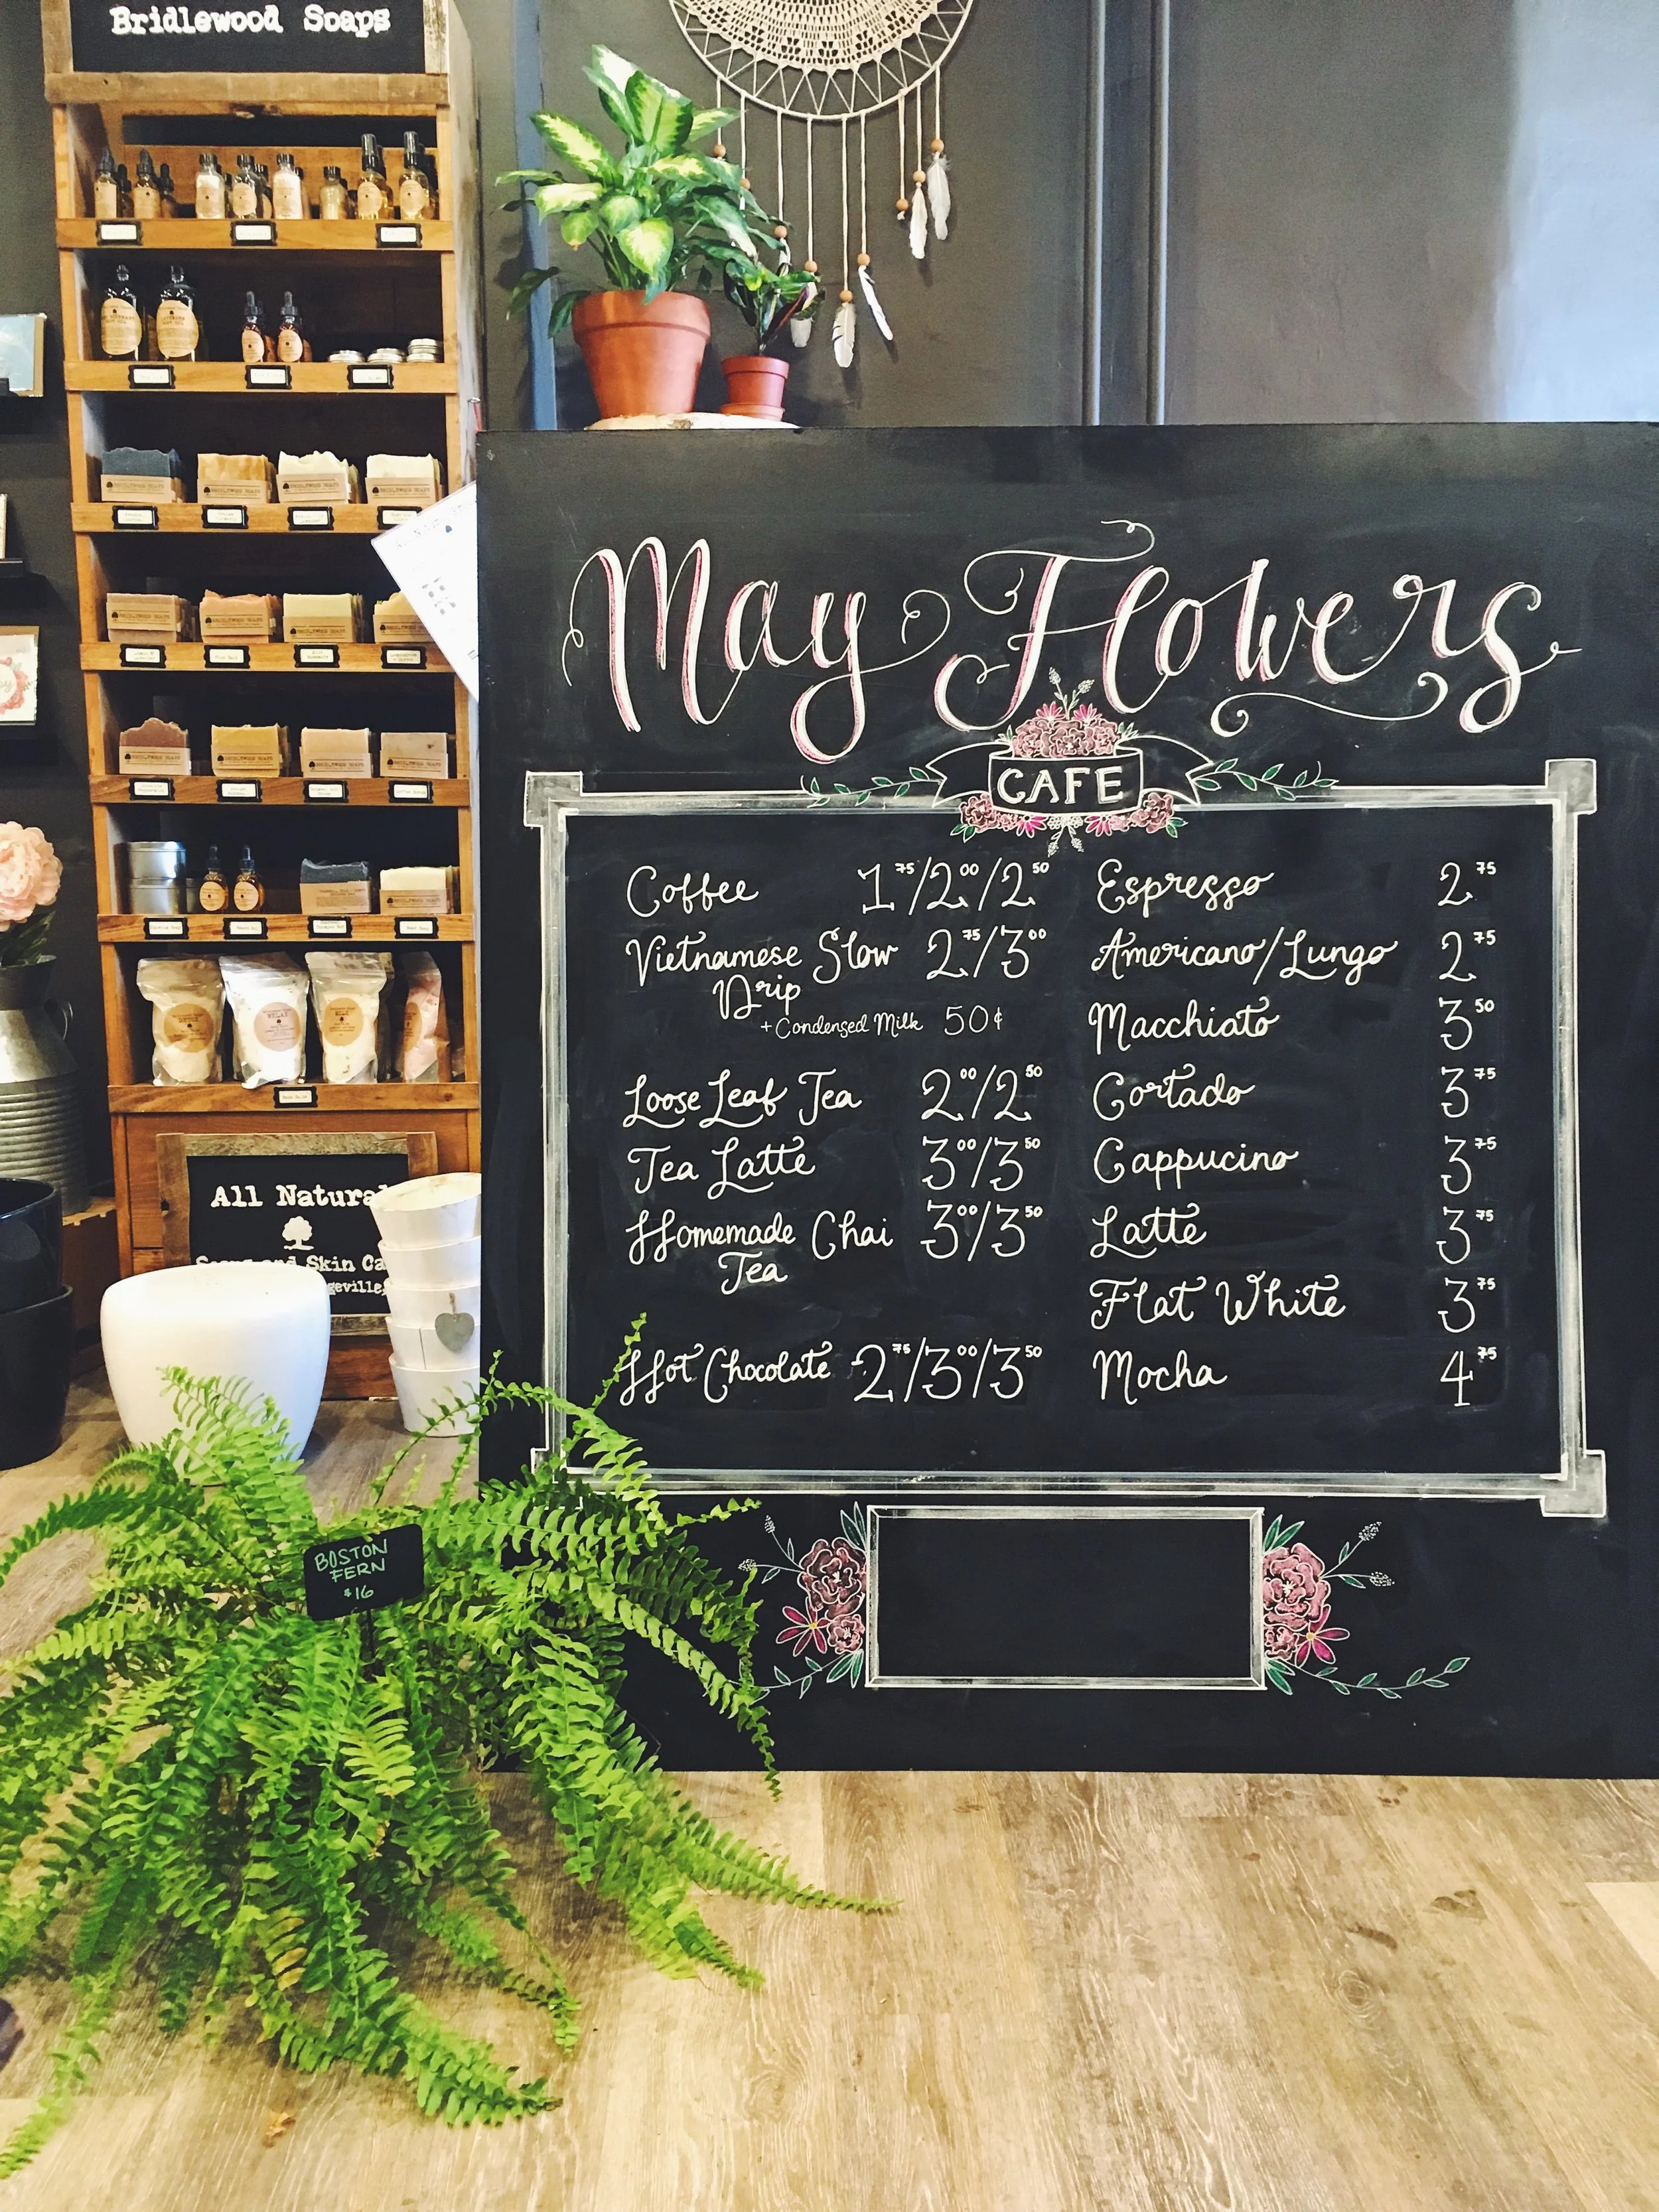 Bridlewood Soaps
May Flowers
CAFE
Coffee 1 75/2 00/2 50
Vietnamese Slow 2 75/3 00
Drip
+ Condensed Milk 50¢
Loose Leaf Tea 2 00/2 50
Tea Latte 3 00/3 50
Homemade Chai 3 00/3 50
Tea
Hot Chocolate 2 75/3 00/3 50
Espresso 2 75
Americano/Lungo 2 75
Macchiato 3 50
Cortado 3 75
Cappucino 3 75
Latte 3 75
Flat White 3 75
Mocha 4 75
All Natural
and Skin Ca
geville,
BOSTON
FERN
$16